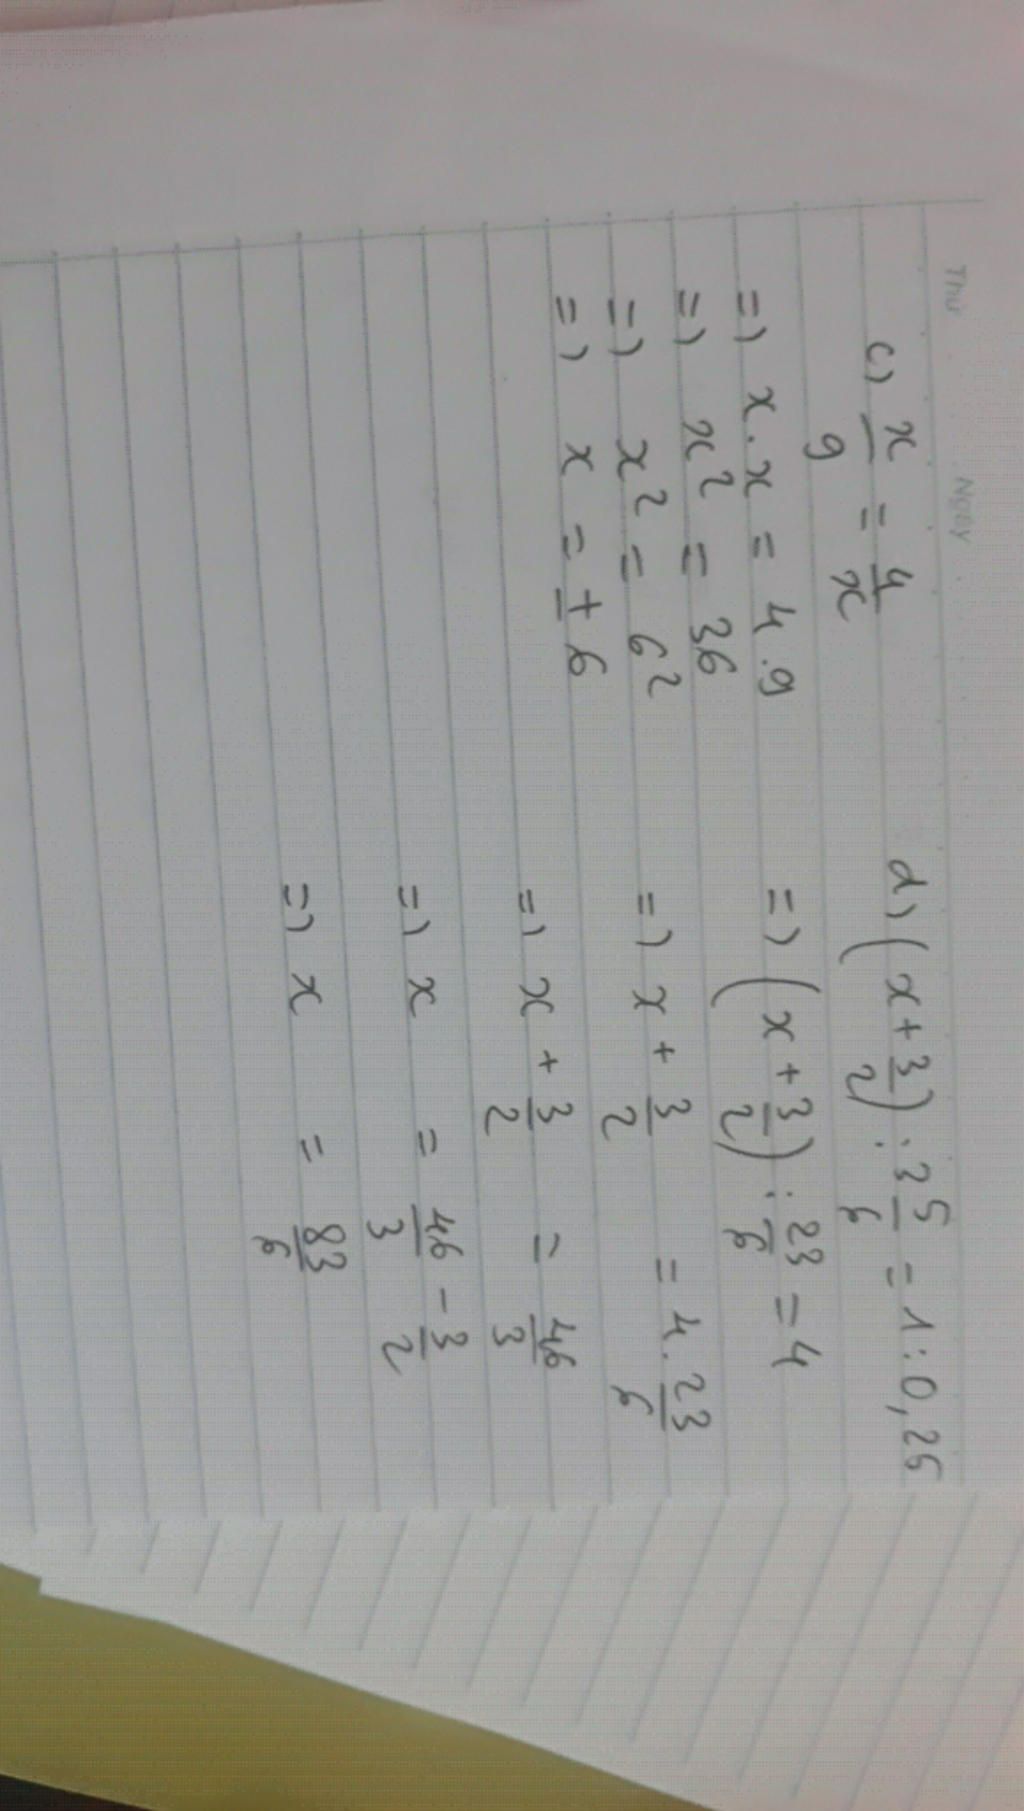 Thứ
Ngày
c) x/9 = 4/x
=) x . x = 4 . 9
=) x² = 36
=) x² = 6²
=) x = ± 6
d) (x + 3/2) : 3 5/6 = 1 : 0,25
=) (x + 3/2) : 23/6 = 4
=) x + 3/2 = 4 . 23/6
=) x + 3/2 = 46/3
=) x = 46/3 - 3/2
=) x = 83/6